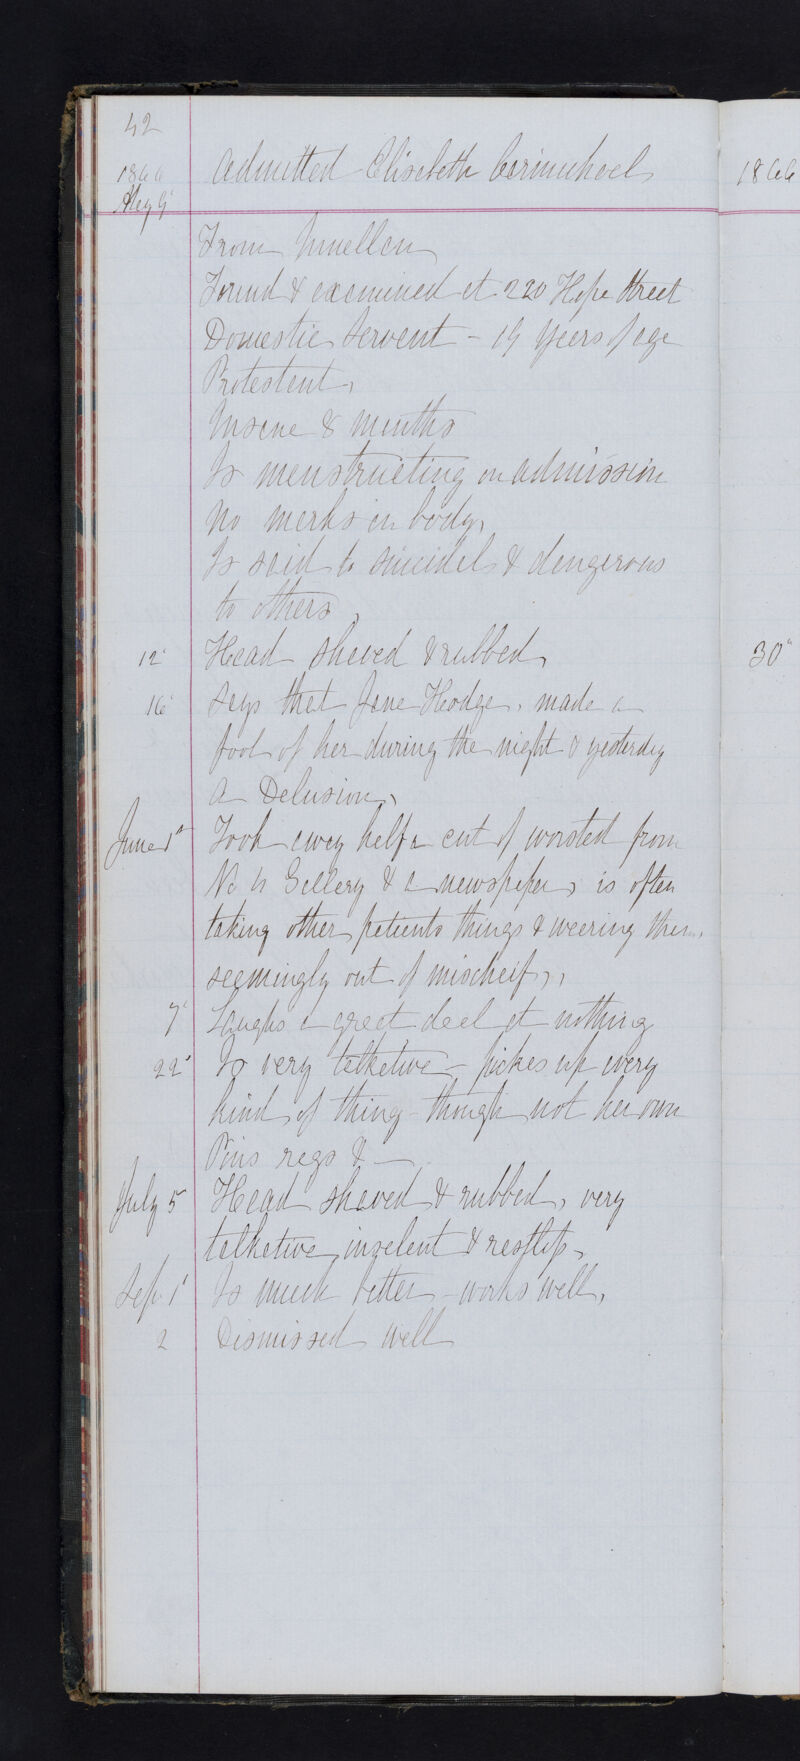 42
1866 Admitted Elisabeth Carmichael 1866
May 9"
From
Found & examined at 220 Hope Street
Domestic Servant - 19 years of age
Protestant,
Insane 8 months
Is menstruating on admission
No marks on body,
Is said to suicidal & dangerous
to others,
12" Head shaved & rubbed, 30"
16" Says that Jane Hodge, made a
fool of her during the night & yesterday
a Delusion,
June 1st Took away half a cut of worsted from
No 4 Gallery & a newspaper, is often
taking other patients things & wearing them,
seemingly out of mischeif,,
7" Laughs a great deal at nothing
22" Is very talkative - pickes up every
kind of thing - though not her own
Pins rags & -
July 5 Head shaved & rubbed, very
talkative, insolent & restless,
Sep. 1" Is much better - works well,
2 Dismissed well